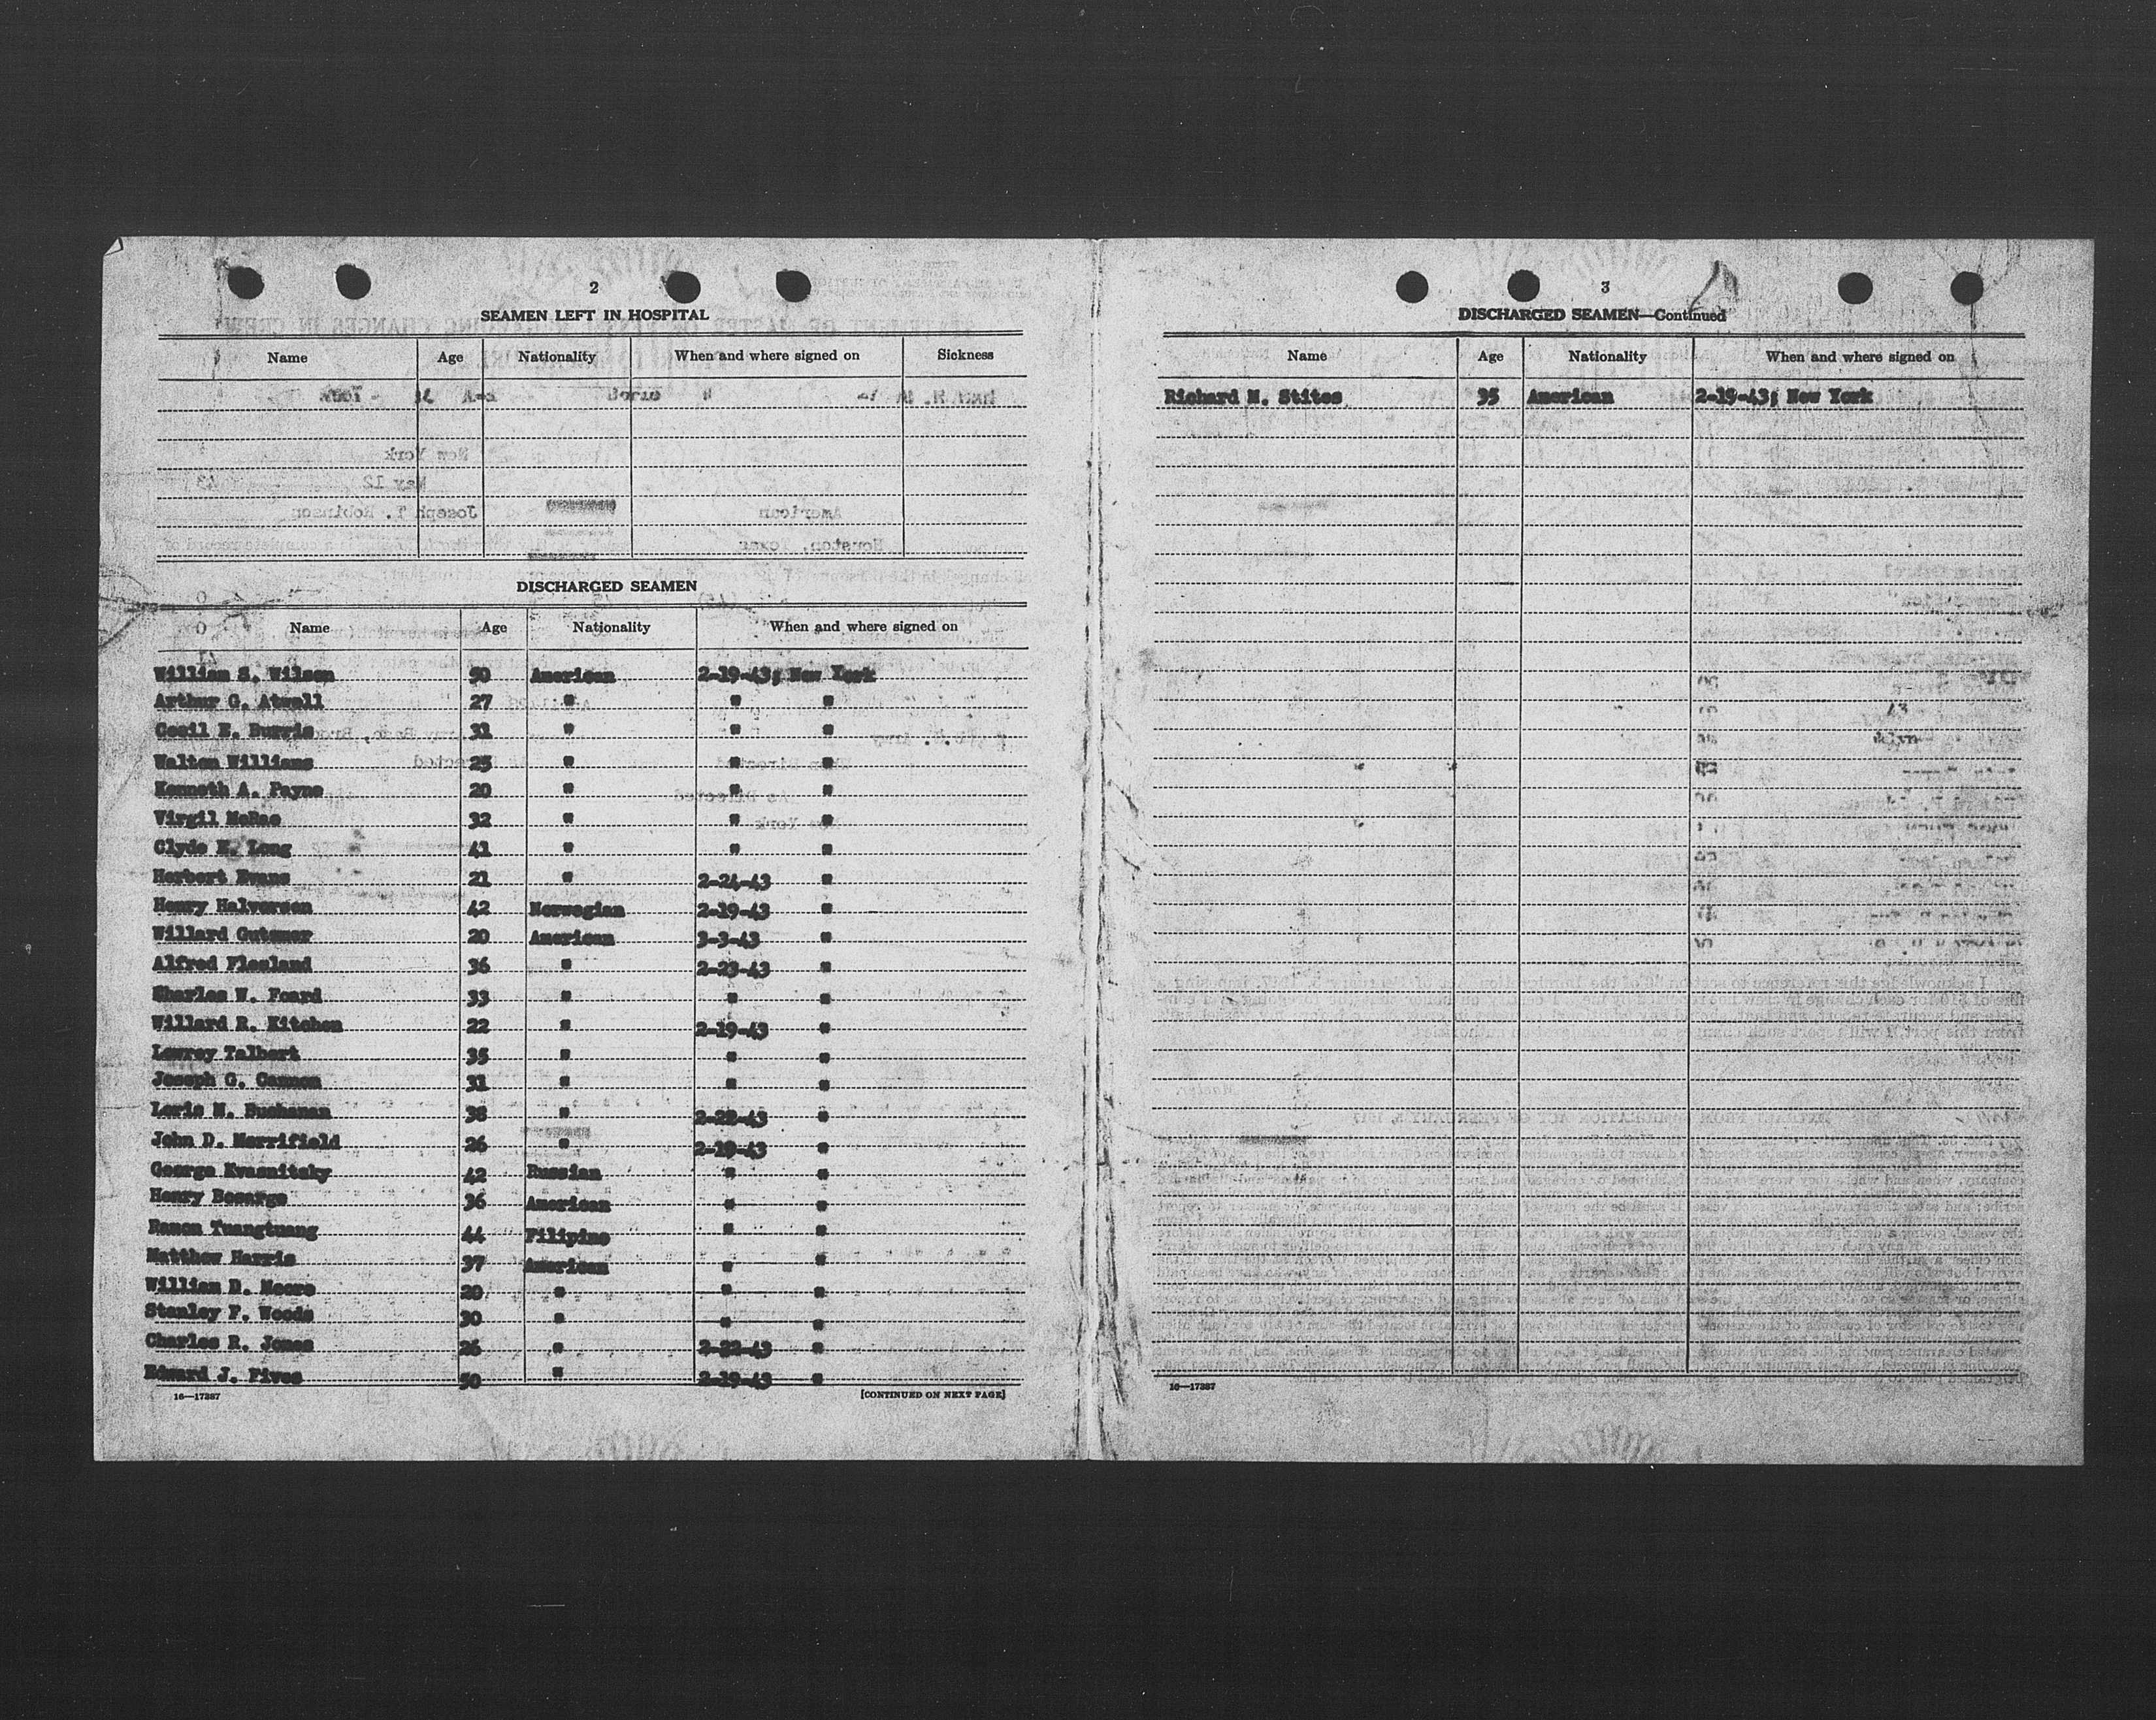 2
SEAMEN LEFT IN HOSPITAL
Name Age Nationality When and where signed on Sickness
DISCHARGED SEAMEN
Name Age Nationality When and where signed on
William S. Wilson 50 American 2-19-43; New York
Arthur G. Atwell 27 " " "
Cecil E. Burris 31 " " "
Walton Williams 25 " " "
Kenneth A. Payne 20 " " "
Virgil McRae 32 " " "
Clyde E. Long 41 " " "
Herbert Evans 21 " 2-24-43 "
Henry Halverson 42 Norwegian 2-19-43 "
Willard Gutsmer 20 American 3-3-43 "
Alfred Flesland 36 " 2-23-43 "
Charles W. Foard 33 " " "
Willard R. Kitchen 22 " 2-19-43 "
Lowrey Talbert 35 " " "
Joseph G. Cannon 31 " " "
Loris M. Buchanan 38 " 2-22-43 "
John D. Merrifield 26 " 2-19-43 "
George Kvasnitsky 42 Russian " "
Henry Bosarge 36 American " "
Ramon Tuangtuang 44 Filipino " "
Matthew Harris 37 American " "
William D. Moore 20 " " "
Stanley F. Woods 30 " " "
Charles R. Jones 26 " 2-22-43 "
Edward J. Fives 50 " 2-19-43 "
16—17387 [CONTINUED ON NEXT PAGE]
3
DISCHARGED SEAMEN—Continued
Name Age Nationality When and where signed on
Richard M. Stites 35 American 2-19-43; New York
16—17387